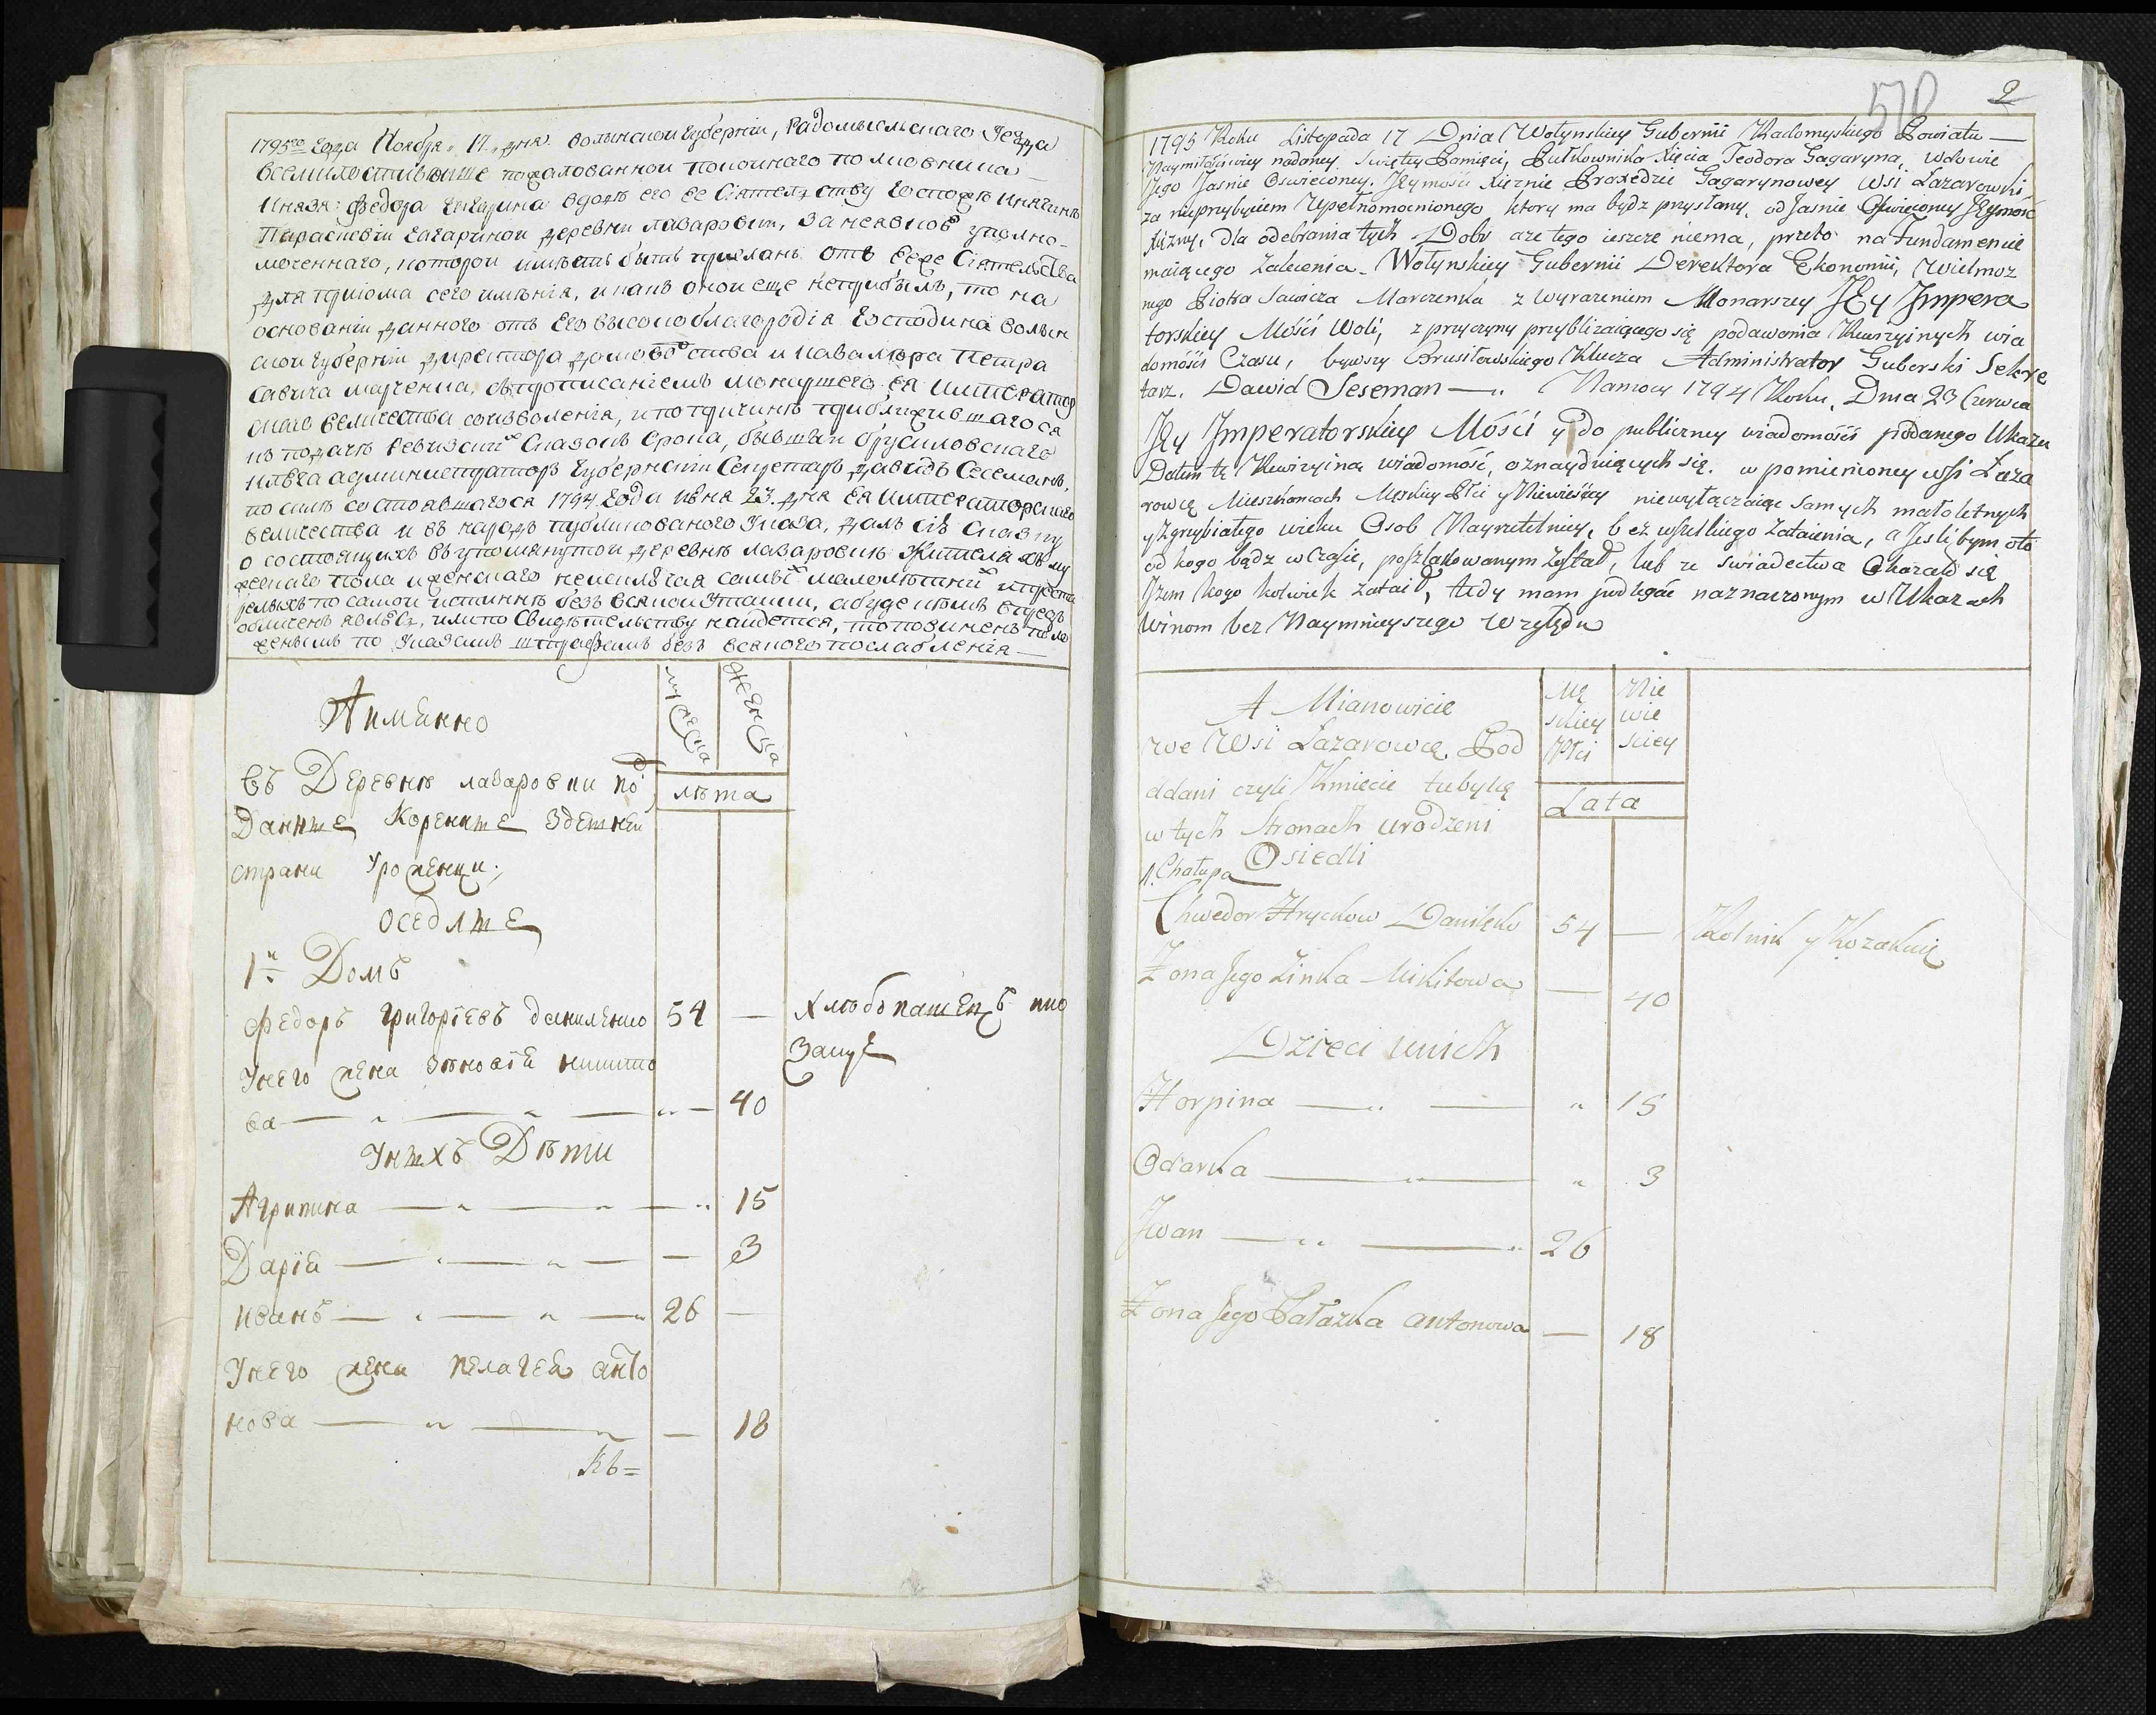 1795го Года Ноября „17„ дня волынской губернiи, Радомысльскаго Уезда
всемилостивейше пожалованной покойнаго полковника
Князя: Федора Гагарина вдове его ее Сiятельству Госпоже Княгине
Параскевiи Гагариной деревни лазаровки, за неявкой уполно-
моченнаго, которой имеетъ быть присланъ отъ Сiятельства
для приiома сего именiя, и какъ оной еще неприбылъ, то на
основанiи данного отъ Его высокоблагородiя Господина волын
ской губернiи директора домоводства и кавалера Петра
Савича марченка, съ прописанiемъ монаршего Ея Императорс
каго величества соизволенiя, и по причине приближившагося
къ подаче Ревизскихъ Сказокъ Срока, бывшiй брусиловскаго
ключа администраторъ Губернскiй Секретарь Давидъ Сесеманъ,
по силе состоявшагося 1794 Года июня 23. дня Ея Императорского
величества и въ народъ публикованого Указа, далъ сiю Сказку
о состоящихъ въ упомянутой деревне лазаровке жителяхъ му
жескаго пола и женскаго неисключая самыхъ малолетнихъ и преста
релыхъ по самой истинне безъ всякой Утайки, а буде кемъ впредь
обличенъ явлюсь, или по Свидетельству найдется, то повиненъ поло
женымъ по Указамъ штрафамъ безъ всякого послабленiя —
Аименно
мужеска
женска
въ Деревне лазаровки по
д
лѣта
Данные Кореные Здешней
страни Уроженци;
оседлые
1й Домъ
Федоръ григорiевъ даниленко 54 — Хлебопашецъ и ко
Унего жена Зѣновiя никито
закуе
ва — „ — „ — „ — 40
Унихъ Дѣти
Агрипина — „ — „ — „ 15
Дарiя — „ — „ — — 3
иванъ — „ — „ — „ 26 —
Унего жена пелагея анто
нова — „ — „ — 18
Къ=
570 2
1795 Roku Listopada 17 Dnia Wołynskiey Gubernii Radomyskiego Powiatu —
Naymiłościwiey nadaney Swiętey Pamięci, Pułkownika Xięcia Teodora Gagaryna, wdowie
Jego Jasnie Oswieconey. Jeymości Xiężnie Praxedzie Gagarynowey Wsi Lazarowki
za nieprzybyciem Upełnomocnionego ktory ma bydz przysłany, od Jasnie Oswieconey Jeymość
Xiężney, dla odebrania tych Dobr aże tego ieszcze niema, przeto na Fundamencie
maiącego Zalecenia Wołynskiey Gubernii Derektora Ekonomii, Wielmoz
nego Piotra Sawicza Marczenka z wyrazeniem Monarszey Jey Impera
torskiey Mości Woli, z przyczyny przyblizaiącego się podawania Rewizyinych wia
domości Czasu, bywszy Brusiłowskiego Klucza Administrator Guberski Sekre
tarz. Dawid Seseman —„ Namocy 1794 Roku, Dnia 23 Czerwca
Jey Imperatorskiey Mości y do publiczney wiadomości podanego Ukazu
Dałem tę Rewizyiną wiadomość, oznayduiących się. w pomienioney wsi Laza
rowce Mieszkancach Męskiey Płci y Niewieściey niewyłączaiąc samych małoletnych
y zgrzybiałego wieku Osob Nayrzetelniey, bez wszelkiego zataienia, a Jesli bym oto
od kogo bądz w Czasie, poszlakowanym Został, lub ze swiadectwa Okazało się
Jżem kogo kolwiek zataił, tedy mam podlegać naznaczonym w Ukazach
Winom bez Naymnieyszego Względu
A Mianowicie
Mę
skiey
Płci
Nie
wie
sciey
we Wsi Lazarowce. Pod
ddani czyli Kmiecie tubylcę
Lata
w tych Stronach urodzeni
Osiedli
1. Chałupa
Chwedor Hryckow Danilęko 54 — Rolnik y Kozakuię
Żona Jego Zinka Mikitowa — 40
Dzieci unich
Horpina —„ — „ 15
Odarka — „ — „ 3
Jwan —„ — „ 26
Żona Jego Pałazka antonowa — 18